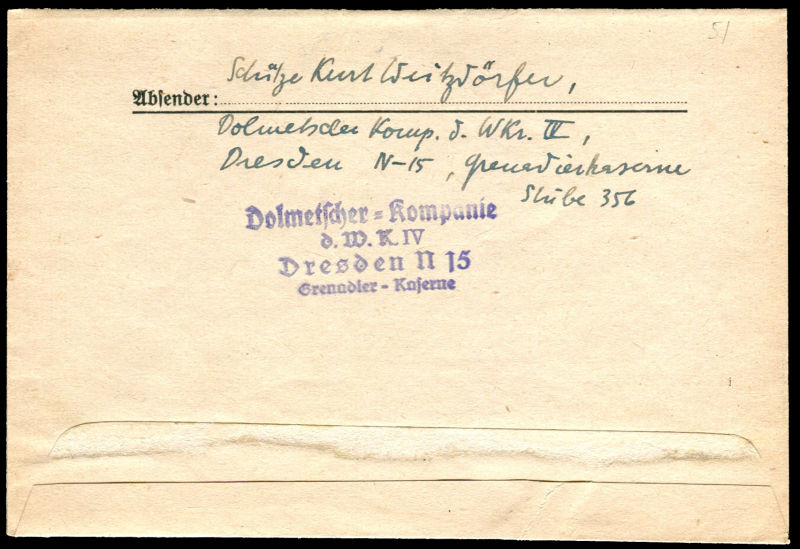 51
Schütze Kurt Weitzdörfer,
Absender:
Dolmetscher Komp. d. WKr. IV,
Dresden N-15, Grenadierkaserne
Stube 356
Dolmetscher-Kompanie
d. W. K. IV
Dresden N 15
Grenadier-Kaserne